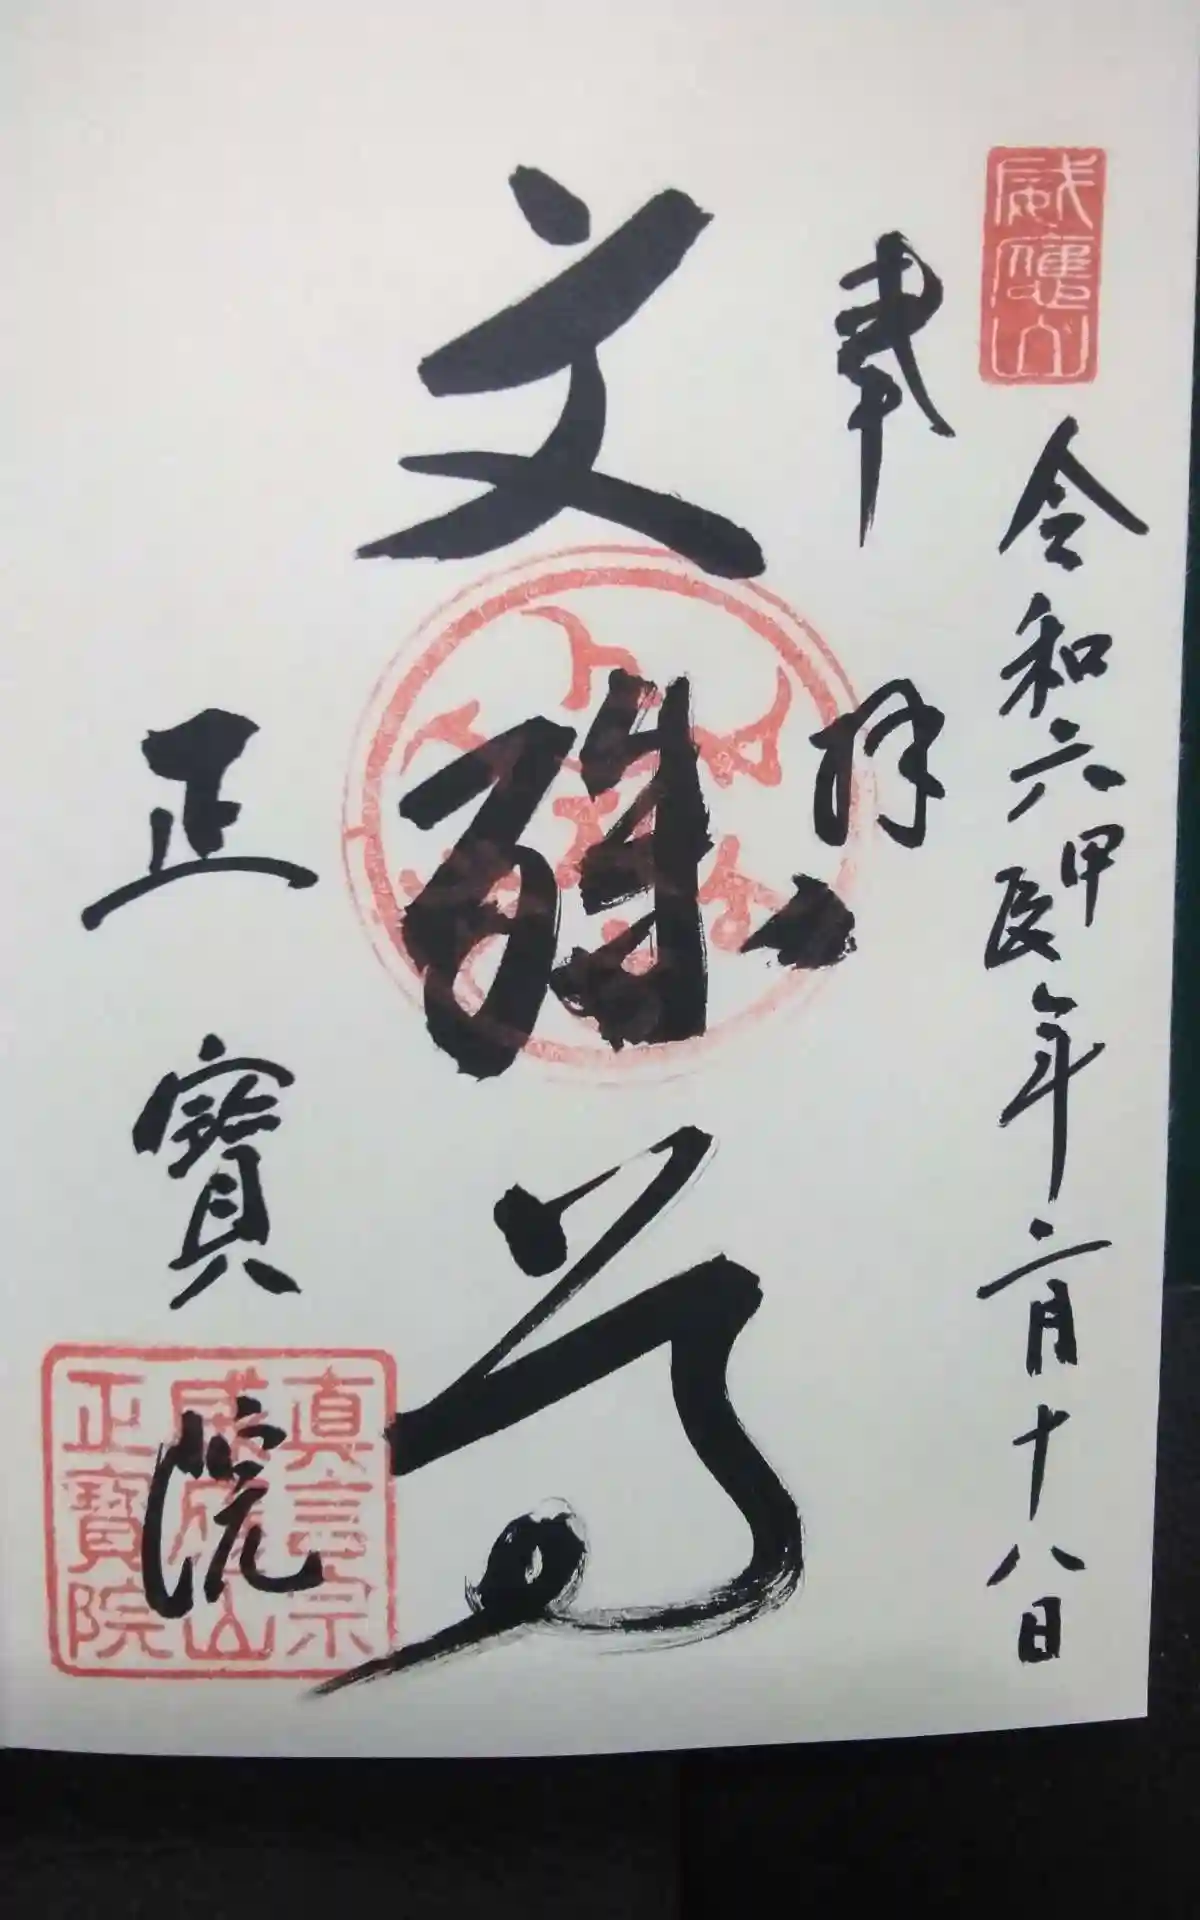 威應山
令和六甲辰年二月十八日
奉拝
文殊尊
正寳院
真言宗
威應山
正寳院